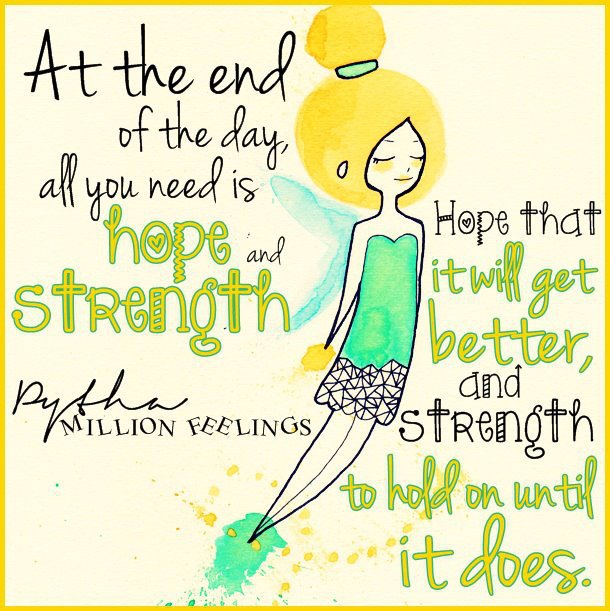 At the end
of the day,
all you need is
hope and
strength
Hope that
it will get
better,
and
strength
to hold on until
it does.
Pytha
MILLION FEELINGS